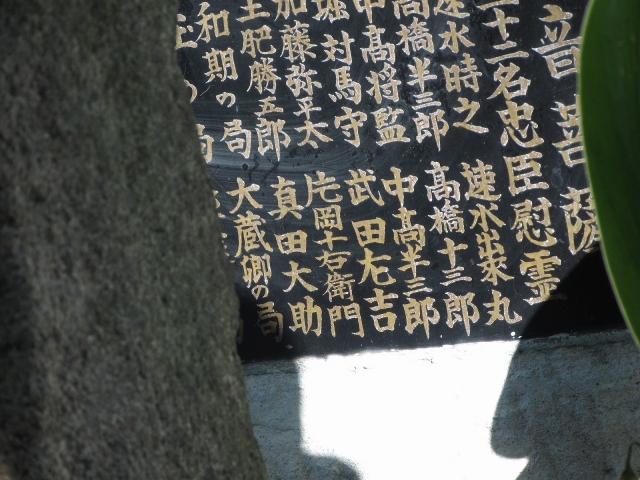 音菩薩
十二名忠臣慰霊
速水時之
速水出来丸
高橋半三郎
高橋十三郎
中高将監
中高半三郎
堀対馬守
武田左吉
加藤弥平太
片岡十右衛門
土肥勝五郎
真田大助
和期の局
大蔵卿の局